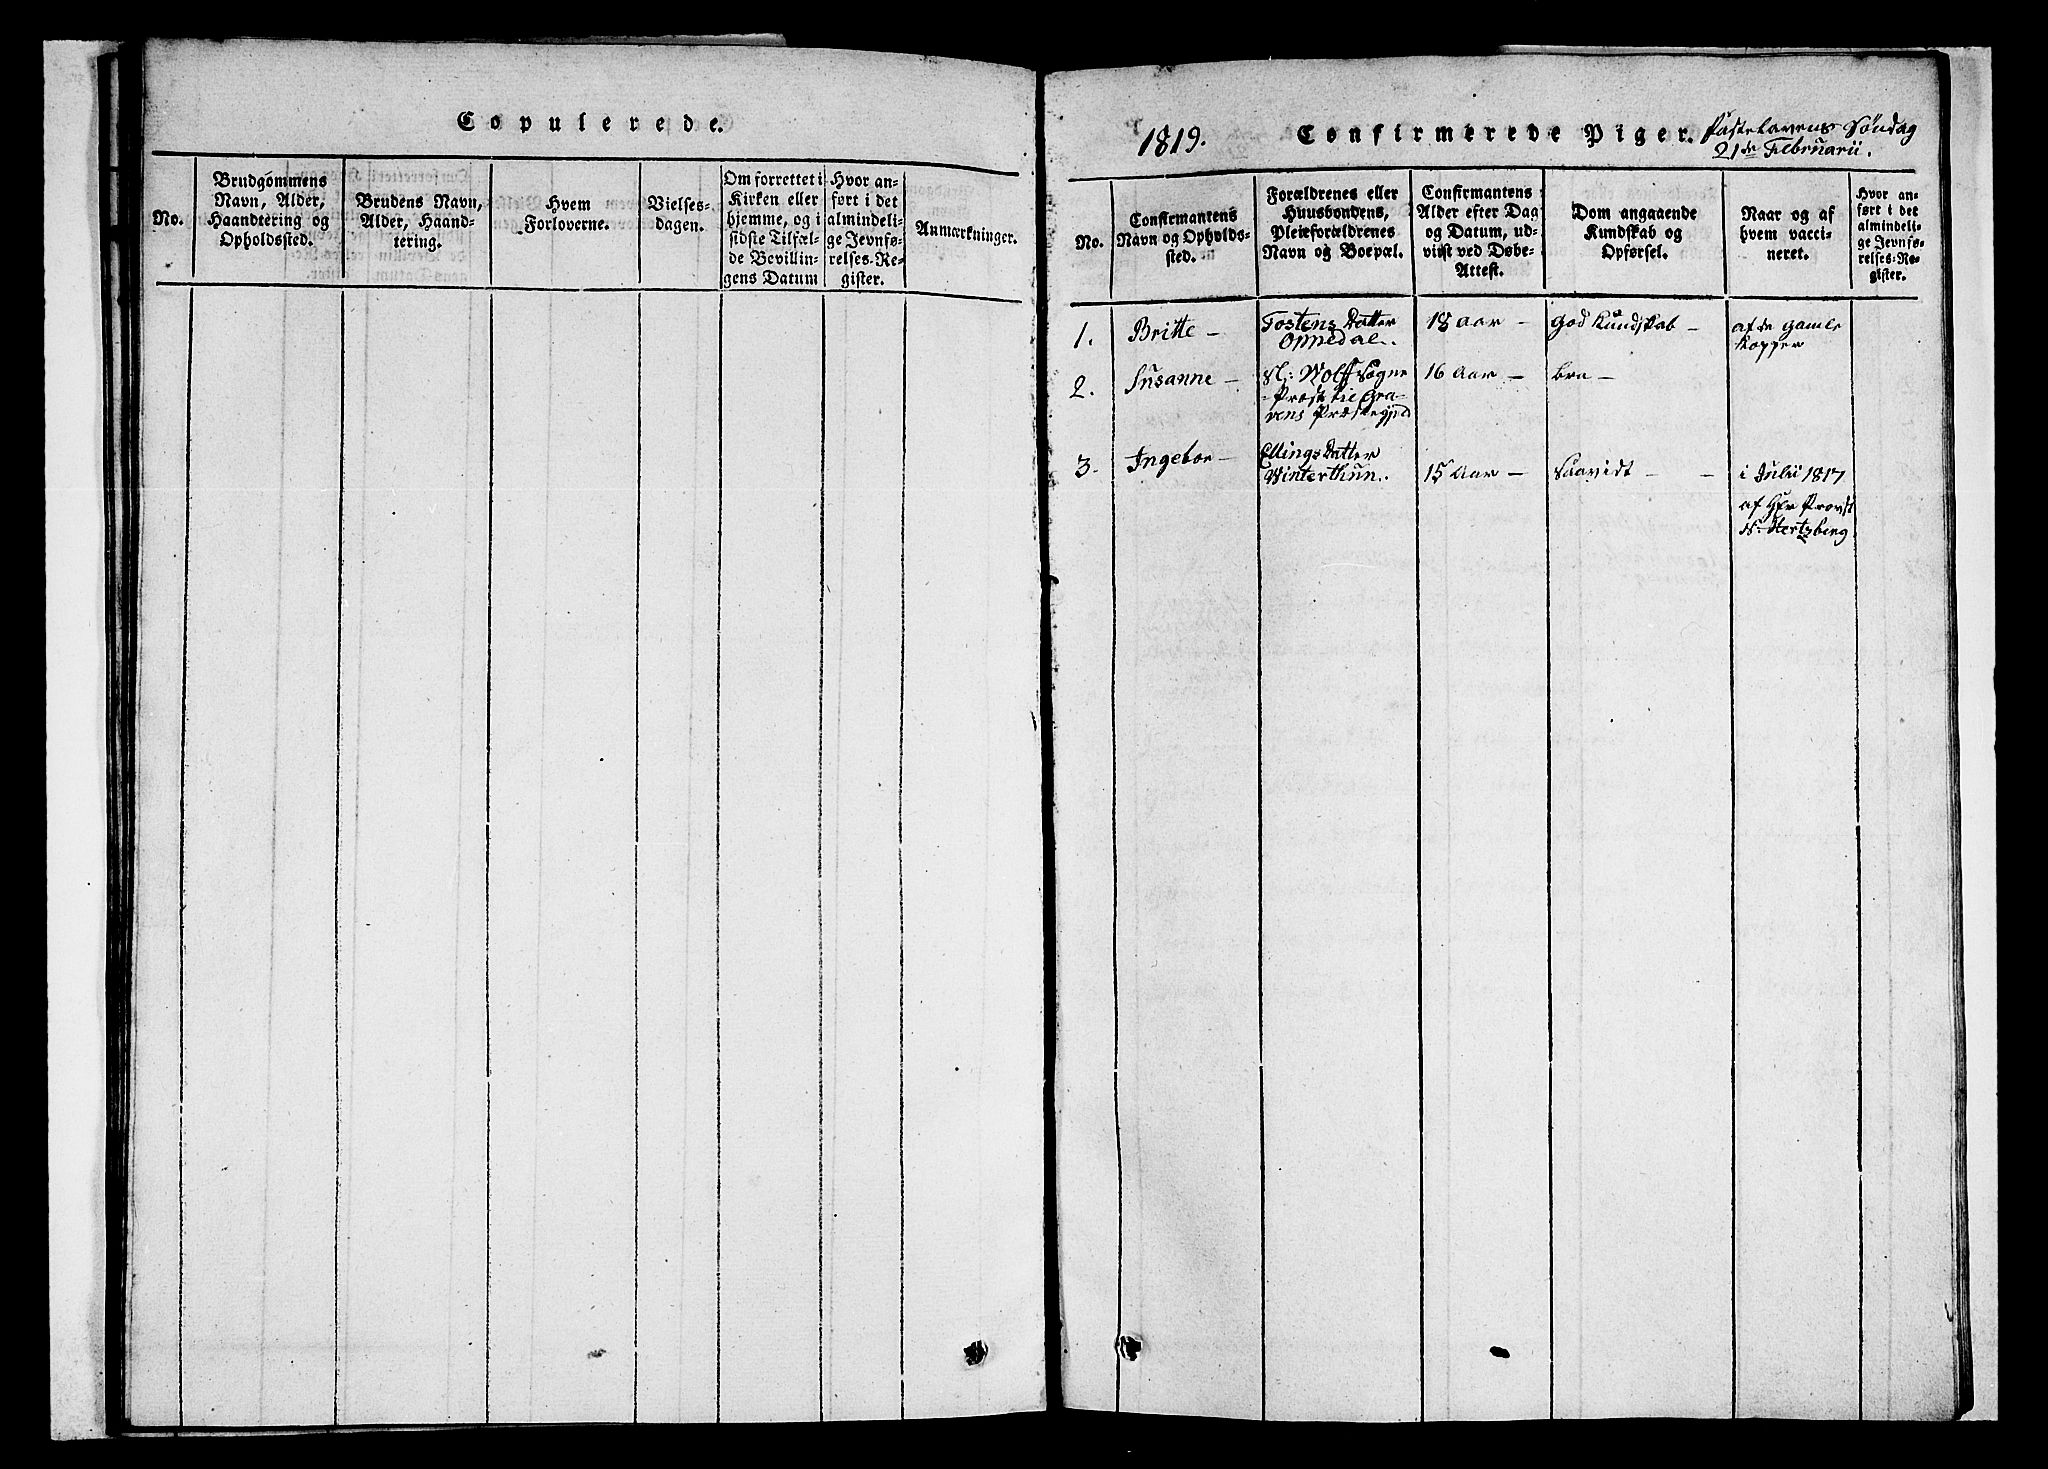 Copulerede.
No.
Brudgommens
Navn, Alder,
Haandtering og
Opholdssted.
Brudens Navn,
Alder, Haand-
tering.
Hvem
Forloverne.
Vielses-
dagen.
Om forrettet i
Kirken eller
hjemme, og i
sidste Tilfæl-
de Bevillin-
gens Datum
Hvor an-
ført i det
almindeli-
ge Jevnfø-
relses-Re-
gister.
Anmærkninger.
1819. Confirmerede Piger. Fastelavens Søndag
21de Februarii.
No.
Confirmantens
Navn og Opholds-
sted.
Forældrenes eller
Huusbondens,
Pleieforældrenes
Navn og Boepæl.
Confirmantens
Alder efter Dag
og Datum, ud-
viist ved Døbe-
Attest.
Dom angaaende
Kundskab og
Opførsel.
Naar og af
hvem vacci-
neret.
Hvor an-
ført i det
almindeli-
ge Jevnfø-
relses-Re-
gister.
1. Britte - Tostens Datter 18 aar - god Kundskab - af de gamle
Oppedal. Kopper
2. Susanne - Sl: Wolff Sogne 16 Aar - bra -
Præst til Gra-
vens Præstegjld
3. Ingebor - Ellings Datter
Winterthun. 15 Aar - Saavidt - - i Julii 1817
af Hr Provst
N. Hertzberg